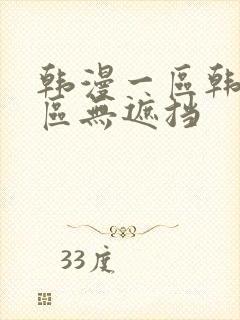 韩漫一區韩
區無遮挡
33度